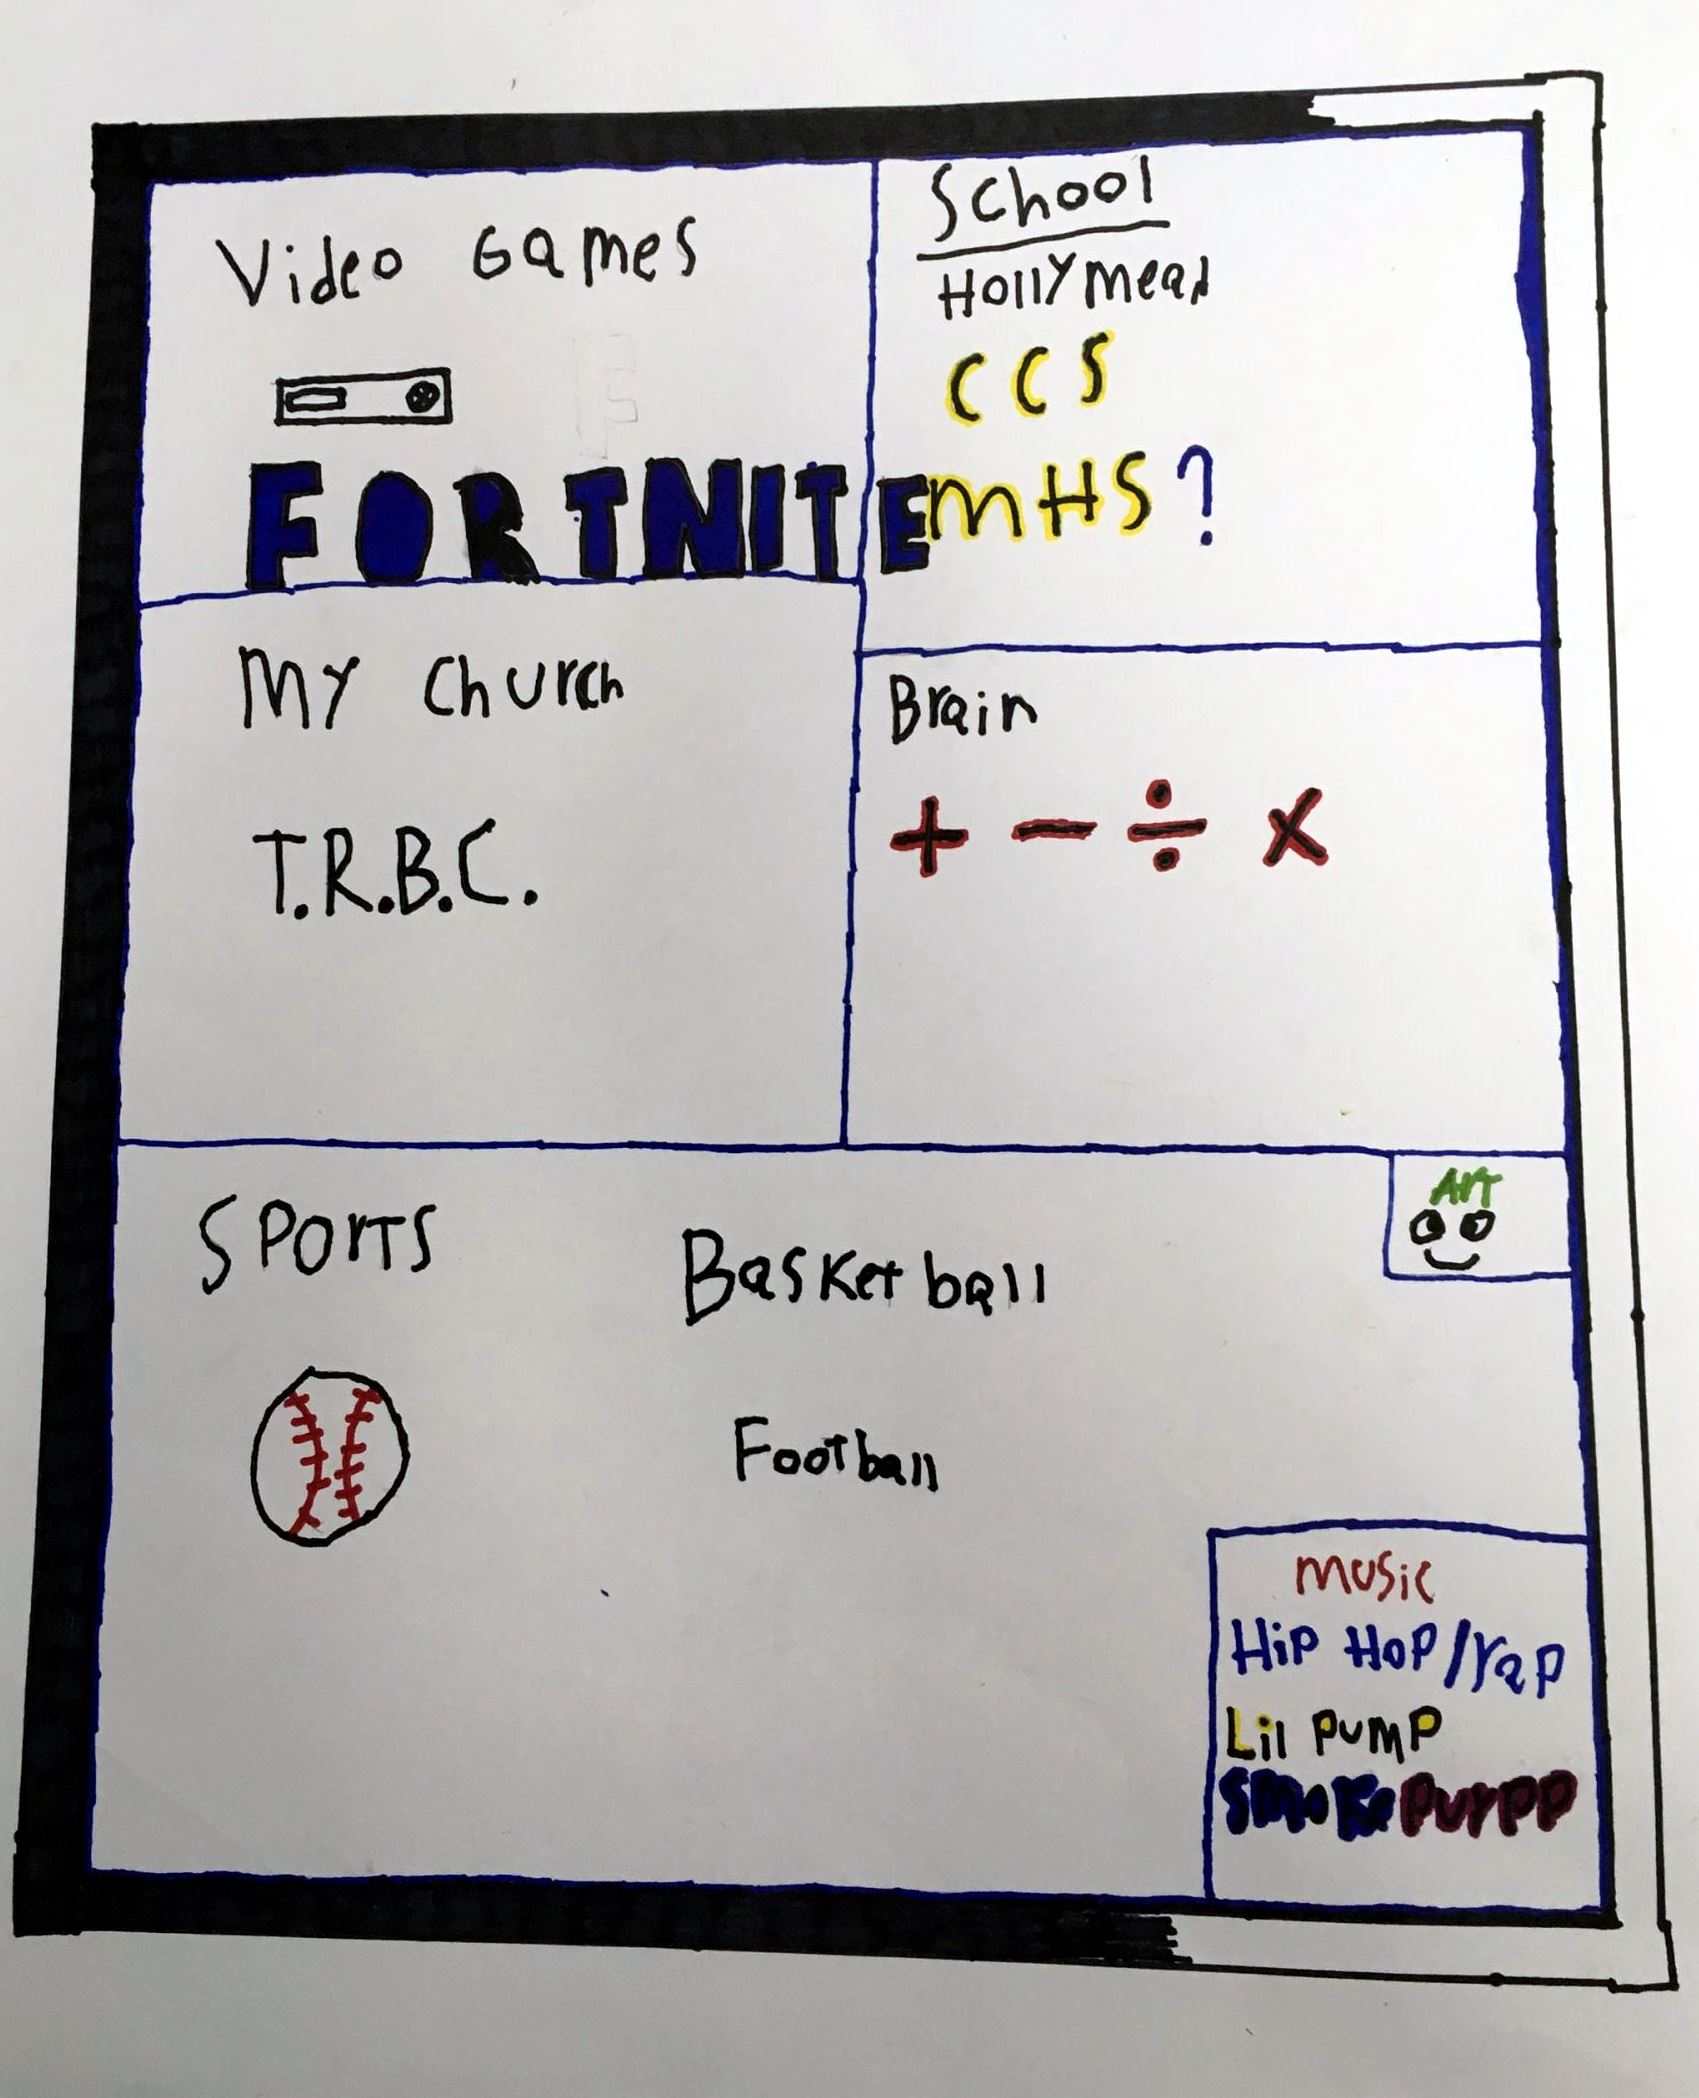 Video Games
FORTNITE
School
Hollymead
CCS
MHS?
My Church
T.R.B.C.
Brain
+ - ÷ x
Sports
Basketball
Football
Art
music
Hip Hop/rap
Lil pump
smoke purpp